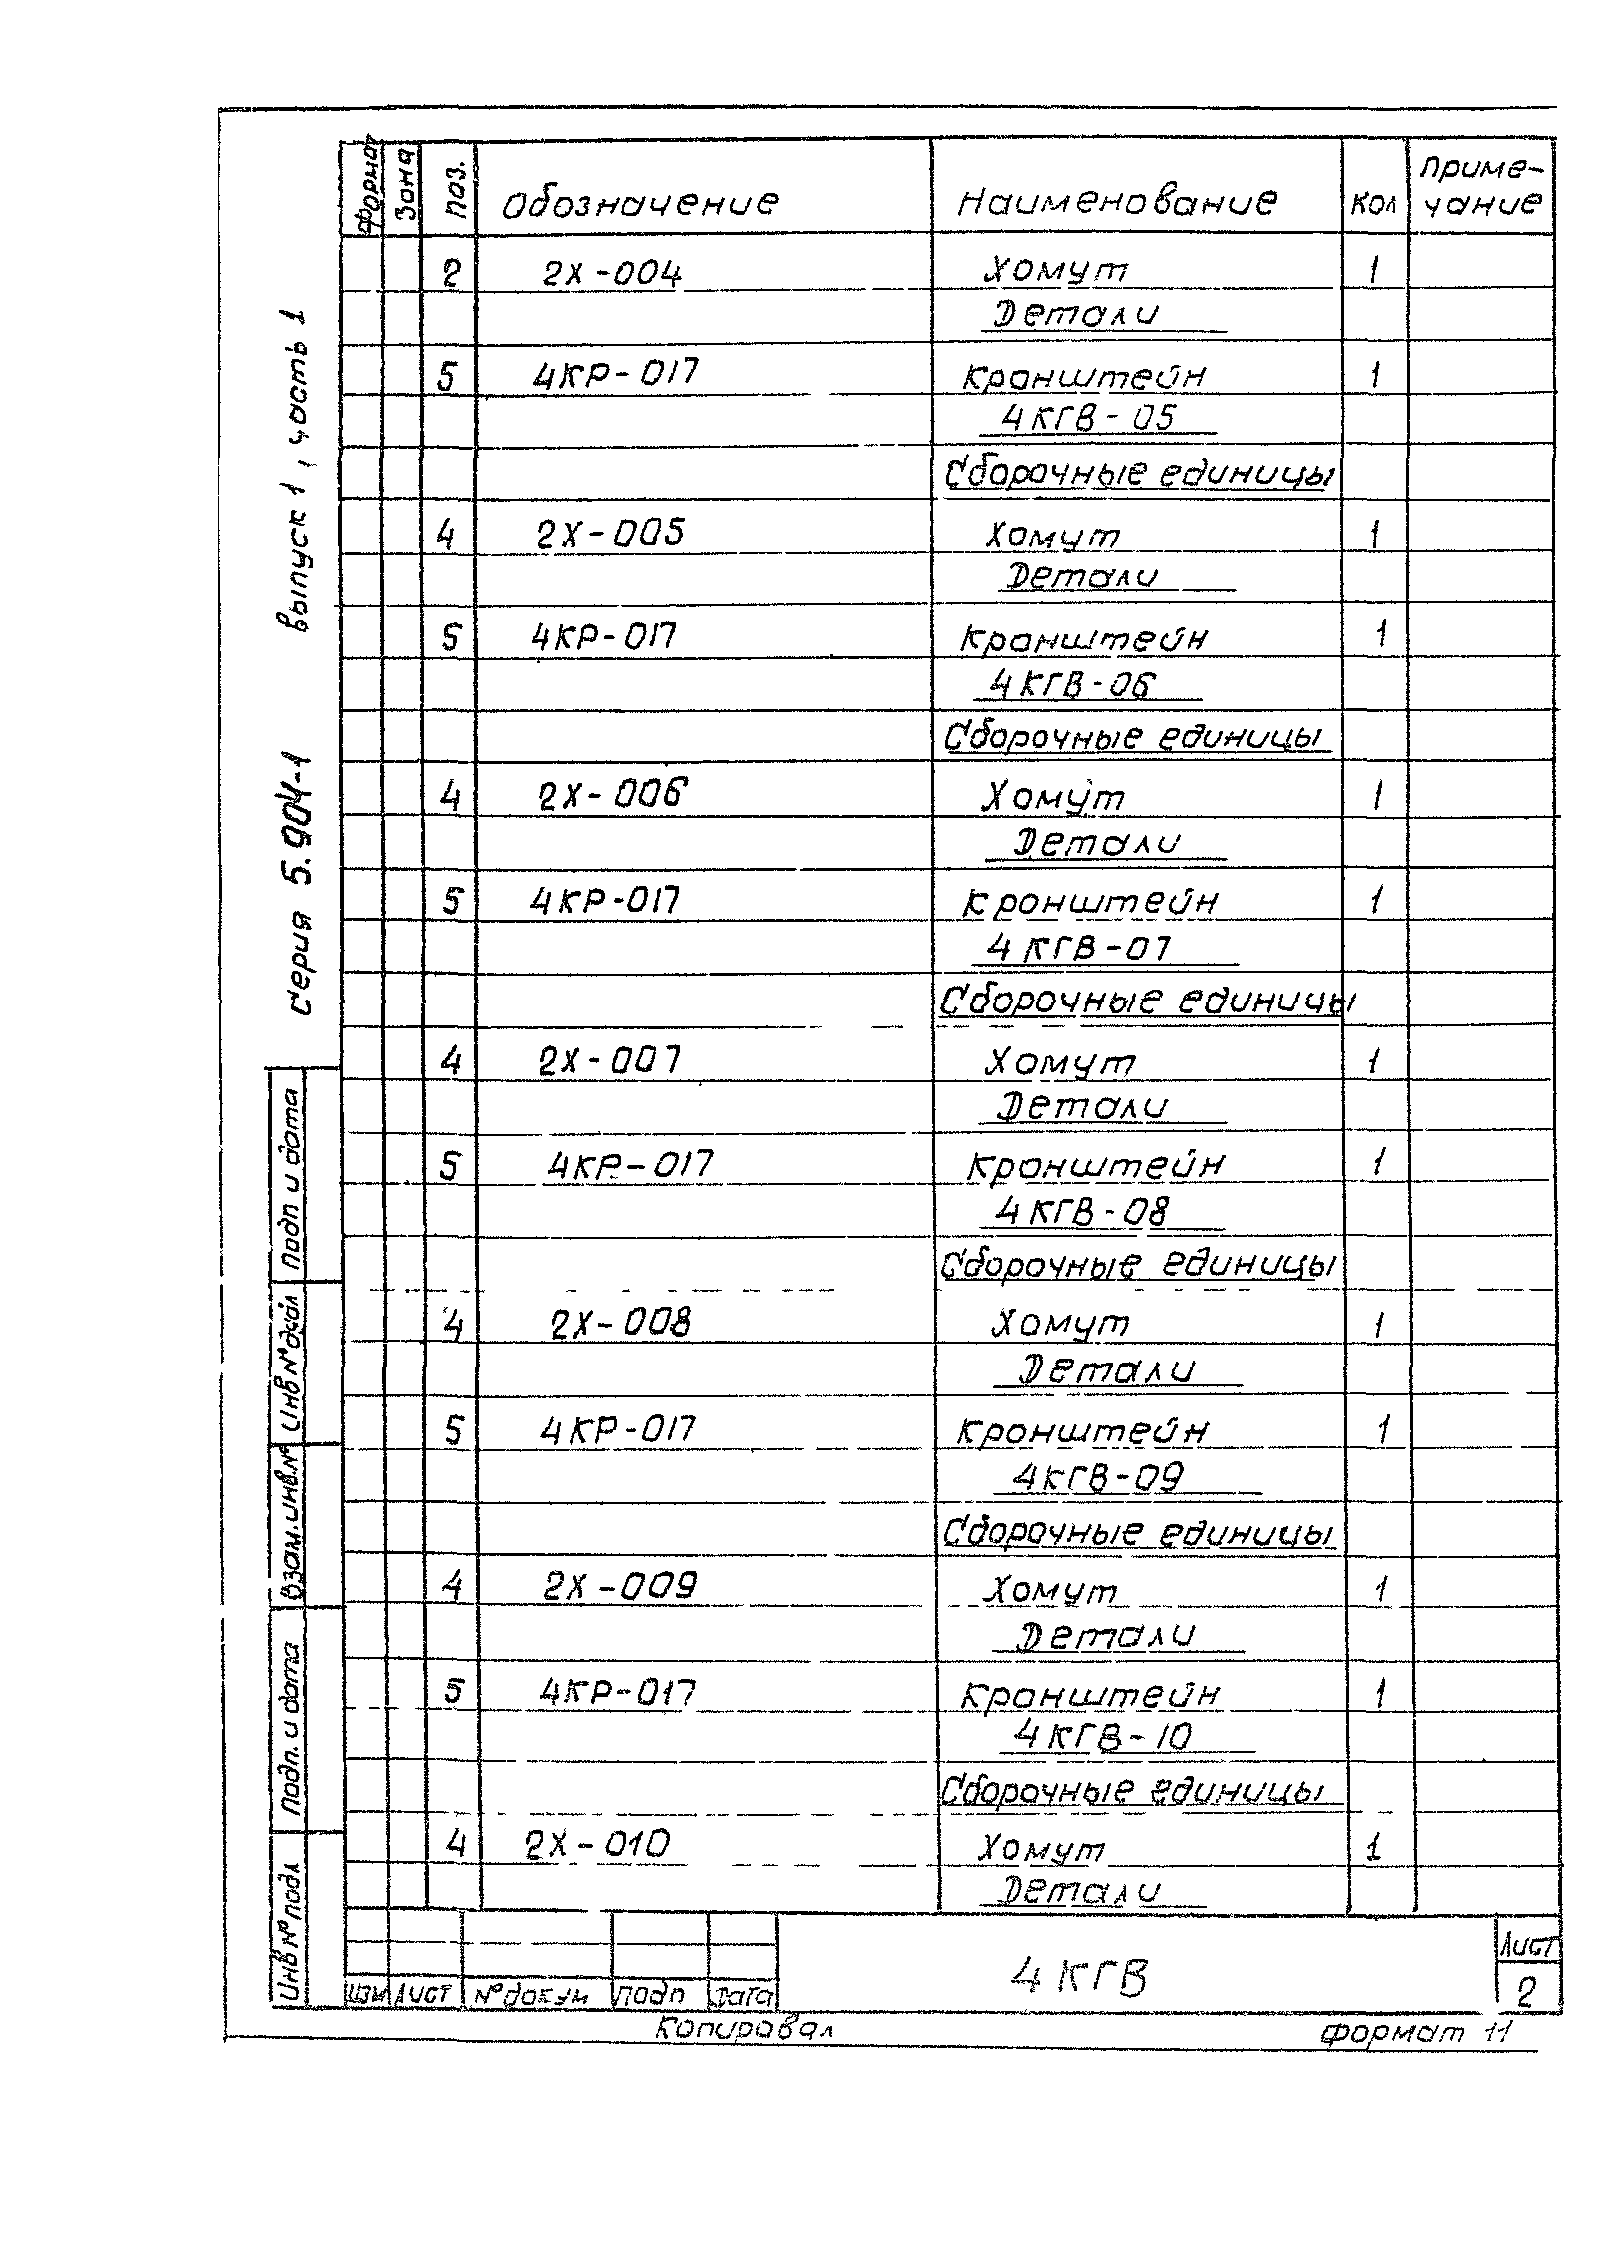 Формат Зона Поз. Обозначение Наименование Кол Приме-
чание
2 2Х-004 Хомут 1
Детали
5 4КР-017 Кронштейн 1
4КГВ-05
Сборочные единицы
4 2Х-005 Хомут 1
Детали
5 4КР-017 Кронштейн 1
4КГВ-06
Сборочные единицы
4 2Х-006 Хомут 1
Детали
5 4КР-017 Кронштейн 1
4КГВ-07
Сборочные единицы
4 2Х-007 Хомут 1
Детали
5 4КР-017 Кронштейн 1
4КГВ-08
Сборочные единицы
4 2Х-008 Хомут 1
Детали
5 4КР-017 Кронштейн 1
4КГВ-09
Сборочные единицы
4 2Х-009 Хомут 1
Детали
5 4КР-017 Кронштейн 1
4КГВ-10
Сборочные единицы
4 2Х-010 Хомут 1
Детали
Изм Лист № докум Подп Дата
4КГВ
Лист
2
Копировал
Формат 11
Серия 5.904-1 выпуск 1, часть 1
Подп и дата
Инв № дубл
Взам. инв. №
Подп. и дата
Инв № подл